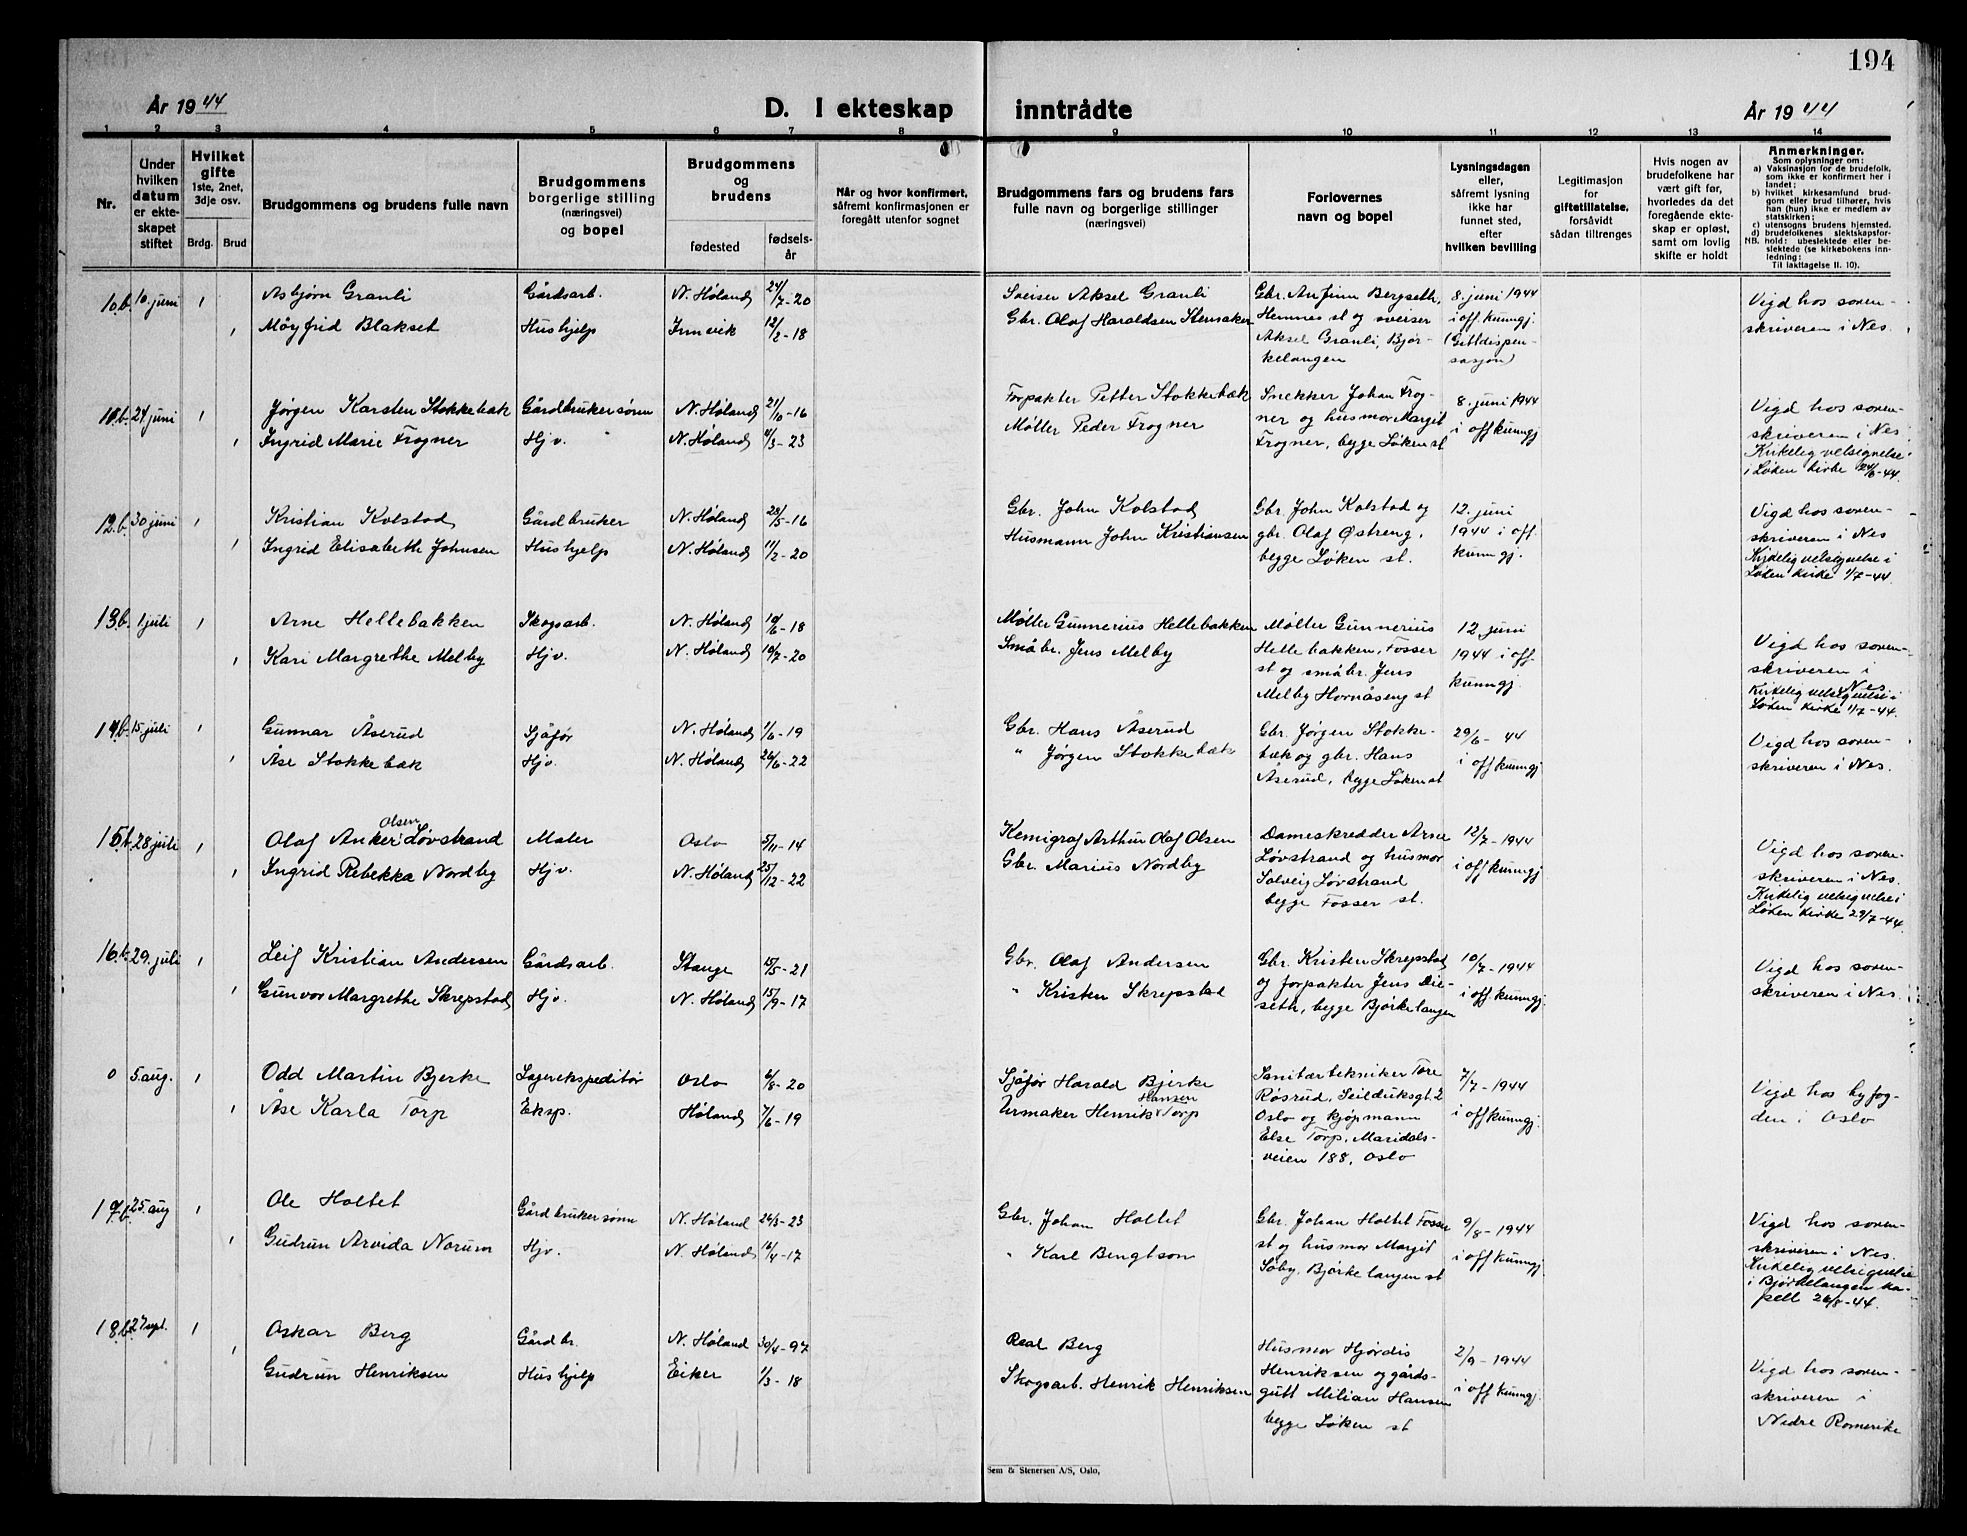 194
År 1944
D. I ekteskap inntrådte
År 1944
1 2 3 4 5 6 7 8 9 10 11 12 13 14
Nr.
Under hvilken datum er ekteskapet stiftet
Hvilket gifte
1ste, 2net, 3dje osv.
Brdg. Brud
Brudgommens og brudens fulle navn
Brudgommens borgerlige stilling (næringsvei) og bopel
Brudgommens og brudens
fødested
fødselsår
Når og hvor konfirmert, såfremt konfirmasjonen er foregått utenfor sognet
Brudgommens fars og brudens fars fulle navn og borgerlige stillinger (næringsvei)
Forlovernes navn og bopel
Lysningsdagen eller, såfremt lysning ikke har funnet sted, efter hvilken bevilling
Legitimasjon for giftetillatelse, forsåvidt sådan tiltrenges
Hvis nogen av brudefolkene har vært gift før, hvorledes da det foregående ekteskap er opløst, samt om lovlig skifte er holdt
Anmerkninger.
Som oplysninger om:
a) Vaksinasjon for de brudefolk, som ikke er konfirmert her i landet;
b) hvilket kirkesamfund brudgom eller brud tilhører, hvis han (hun) ikke er medlem av statskirken;
c) utensogns brudens hjemsted.
d) brudefolkenes slektskapsforhold: ubeslektede eller beslektede (se kirkebokens innledning:
NB.
Til Iakttagelse II. 10).
10.b. 10. juni 1 Asbjørn Granli Gårdsarb. N. Høland 24/7-20 Sveiser Aksel Granli
1 Møyfrid Blakset Hushjelp Innvik 12/2-18 Gbr. Olaf Haraldsen Stensaker
Gbr. Anfinn Bergseth,
Hemnes st og sveiser
Aksel Granli, Bjør-
kelangen
8. juni 1944
i off. kunngj.
(Gitt dispen-
sasjon)
Vigd hos soren-
skriveren i Nes.
11.b. 24 juni 1 Jørgen Karsten Stokkebæk Gårdbrukersønn N. Høland 21/10-16 Forpakter Petter Stokkebæk
1 Ingrid Marie Frogner Hjv. N. Høland 4/3-23 Møller Peder Frogner
Snekker Johan Frog-
ner og husmor Margit
Frogner, begge Løken st
8. juni 1944
i off kunngj
Vigd hos soren-
skriveren i Nes.
Kirkelig velsignelse
i Løken kirke 24/6-44.
12.b. 30 juni 1 Kristian Kolstad Gårdbruker N. Høland 28/5-16 Gbr. John Kolstad
1 Ingrid Elisabeth Johnsen Hushjelp N. Høland 11/2-20 Husmann John Kristiansen
Gbr. John Kolstad og
gbr. Olaf Østreng,
begge Løken st.
12. juni
1944 i off.
kunngj.
Vigd hos soren-
skriveren i Nes
Kirkelig velsignelse i
Løken kirke 1/7-44.
13.b. 1 juli 1 Arne Hellebakken Skogsarb. N. Høland 10/6-18 Møller Gunnerius Hellebakken
1 Kari Margrethe Melby Hjv. N. Høland 10/7-20 Småbr. Jens Melby
Møller Gunnerius
Hellebakken, Fosser
st og småbr. Jens
Melby Hornåseng st
12 juni
1944 i off
kunngj.
Vigd hos soren-
skriveren i
Nes
Kirkelig velsignelse i
Løken kirke 1/7-44.
14.b. 15 juli 1 Gunnar Åserud Sjåfør N. Høland 1/6-19 Gbr. Hans Åserud
1 Åse Stokkebæk Hjv. N. Høland 26/6-22 " Jørgen Stokkebæk
Gbr. Jørgen Stokke-
bæk og gbr. Hans
Åserud, begge Løken st
29/6-44
i off kunngj
Vigd hos soren-
skriveren i Nes.
15.b. 28 juli 1 Olaf Anker Olsen Løvstrand Maler Oslo 5/11-14 Kemigraf Arthur Olaf Olsen
1 Ingrid Rebekka Nordby Hjv. N. Høland 25/12-22 Gbr. Marius Nordby
Dameskredder Arne
Løvstrand og husmor
Solveig Løvstrand
begge Fosser st.
12/7-1944
i off kunngj
Vigd hos soren-
skriveren i Nes.
Kirkelig velsignelse i
Løken kirke 29/7-44.
16.b. 29. juli 1 Leif Kristian Andersen Gårdsarb. Stange 15/5-21 Gbr. Olaf Andersen
1 Gunvor Margrethe Skrepstad Hjv. N. Høland 15/9-17 " Kristen Skrepstad
Gbr. Kristen Skrepstad
og forpakter Jens Die-
seth, begge Bjørkelangen
10/7-1944
i off kunngj.
Vigd hos soren-
skriveren i Nes.
0 5. aug. 1 Odd Martin Bjerke Lagerekspeditør Oslo 6/8-20 Sjåfør Harald Bjerke
1 Åse Karla Torp Eksp. Høland 7/6-19 Urmaker Henrik Hansen Torp
Sanitærtekniker Tore
Røsrud, Seilduksgt. 2
Oslo og kjøpmann
Else Torp, Maridals-
veien 188, Oslo
7/7-1944
i off kunngj.
Vigd hos byfog-
den i Oslo
17.b. 25. aug 1 Ole Holtet Gårdbrukersønn N. Høland 26/3-23 Gbr. Johan Holtet
1 Gudrun Arvida Norum Hjv. N. Høland 16/4-17 " Karl Bengtson
Gbr. Johan Holtet Fosser
st og husmor Margit
Søby, Bjørkelangen st
9/8-1944
i off kunngj
Vigd hos soren-
skriveren i Nes.
Kirkelig velsignelse
i Bjørkelangen ka-
pell 26/8-44.
18.b. 27 sept. 1 Oskar Berg Gårdbr. N. Høland 30/4-97 Real Berg
1 Gudrun Henriksen Hushjelp Eiker 1/3-18 Skogsarb. Henrik Henriksen
Husmor Hjørdis
Henriksen og gårds-
gutt Milian Hansen
begge Løken st
2/9-1944
i off kunngj.
Vigd hos soren-
skriveren i
Nedre Romerike
Sem & Stenersen A/S, Oslo.